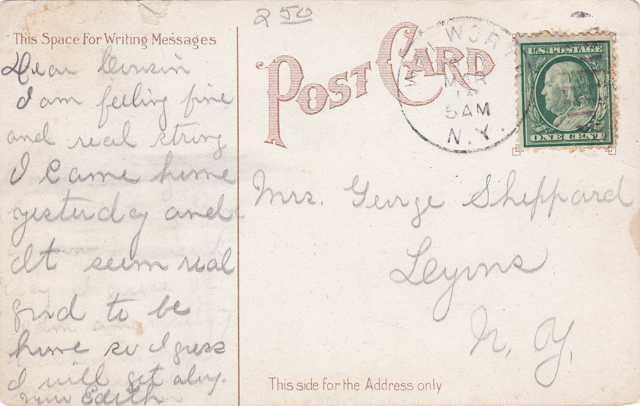 2 50
This Space For Writing Messages
POST CARD
WORT
MAR
5 AM
N.Y.
U.S. POSTAGE
ONE CENT
Dear Cousin
I am feeling fine
and real strong
I Came home
yesterday and
It seem real
good to be
home so I guess
I will get along.
Edith
Mrs. George Sheppard
Leyons
N. Y.
This side for the Address only